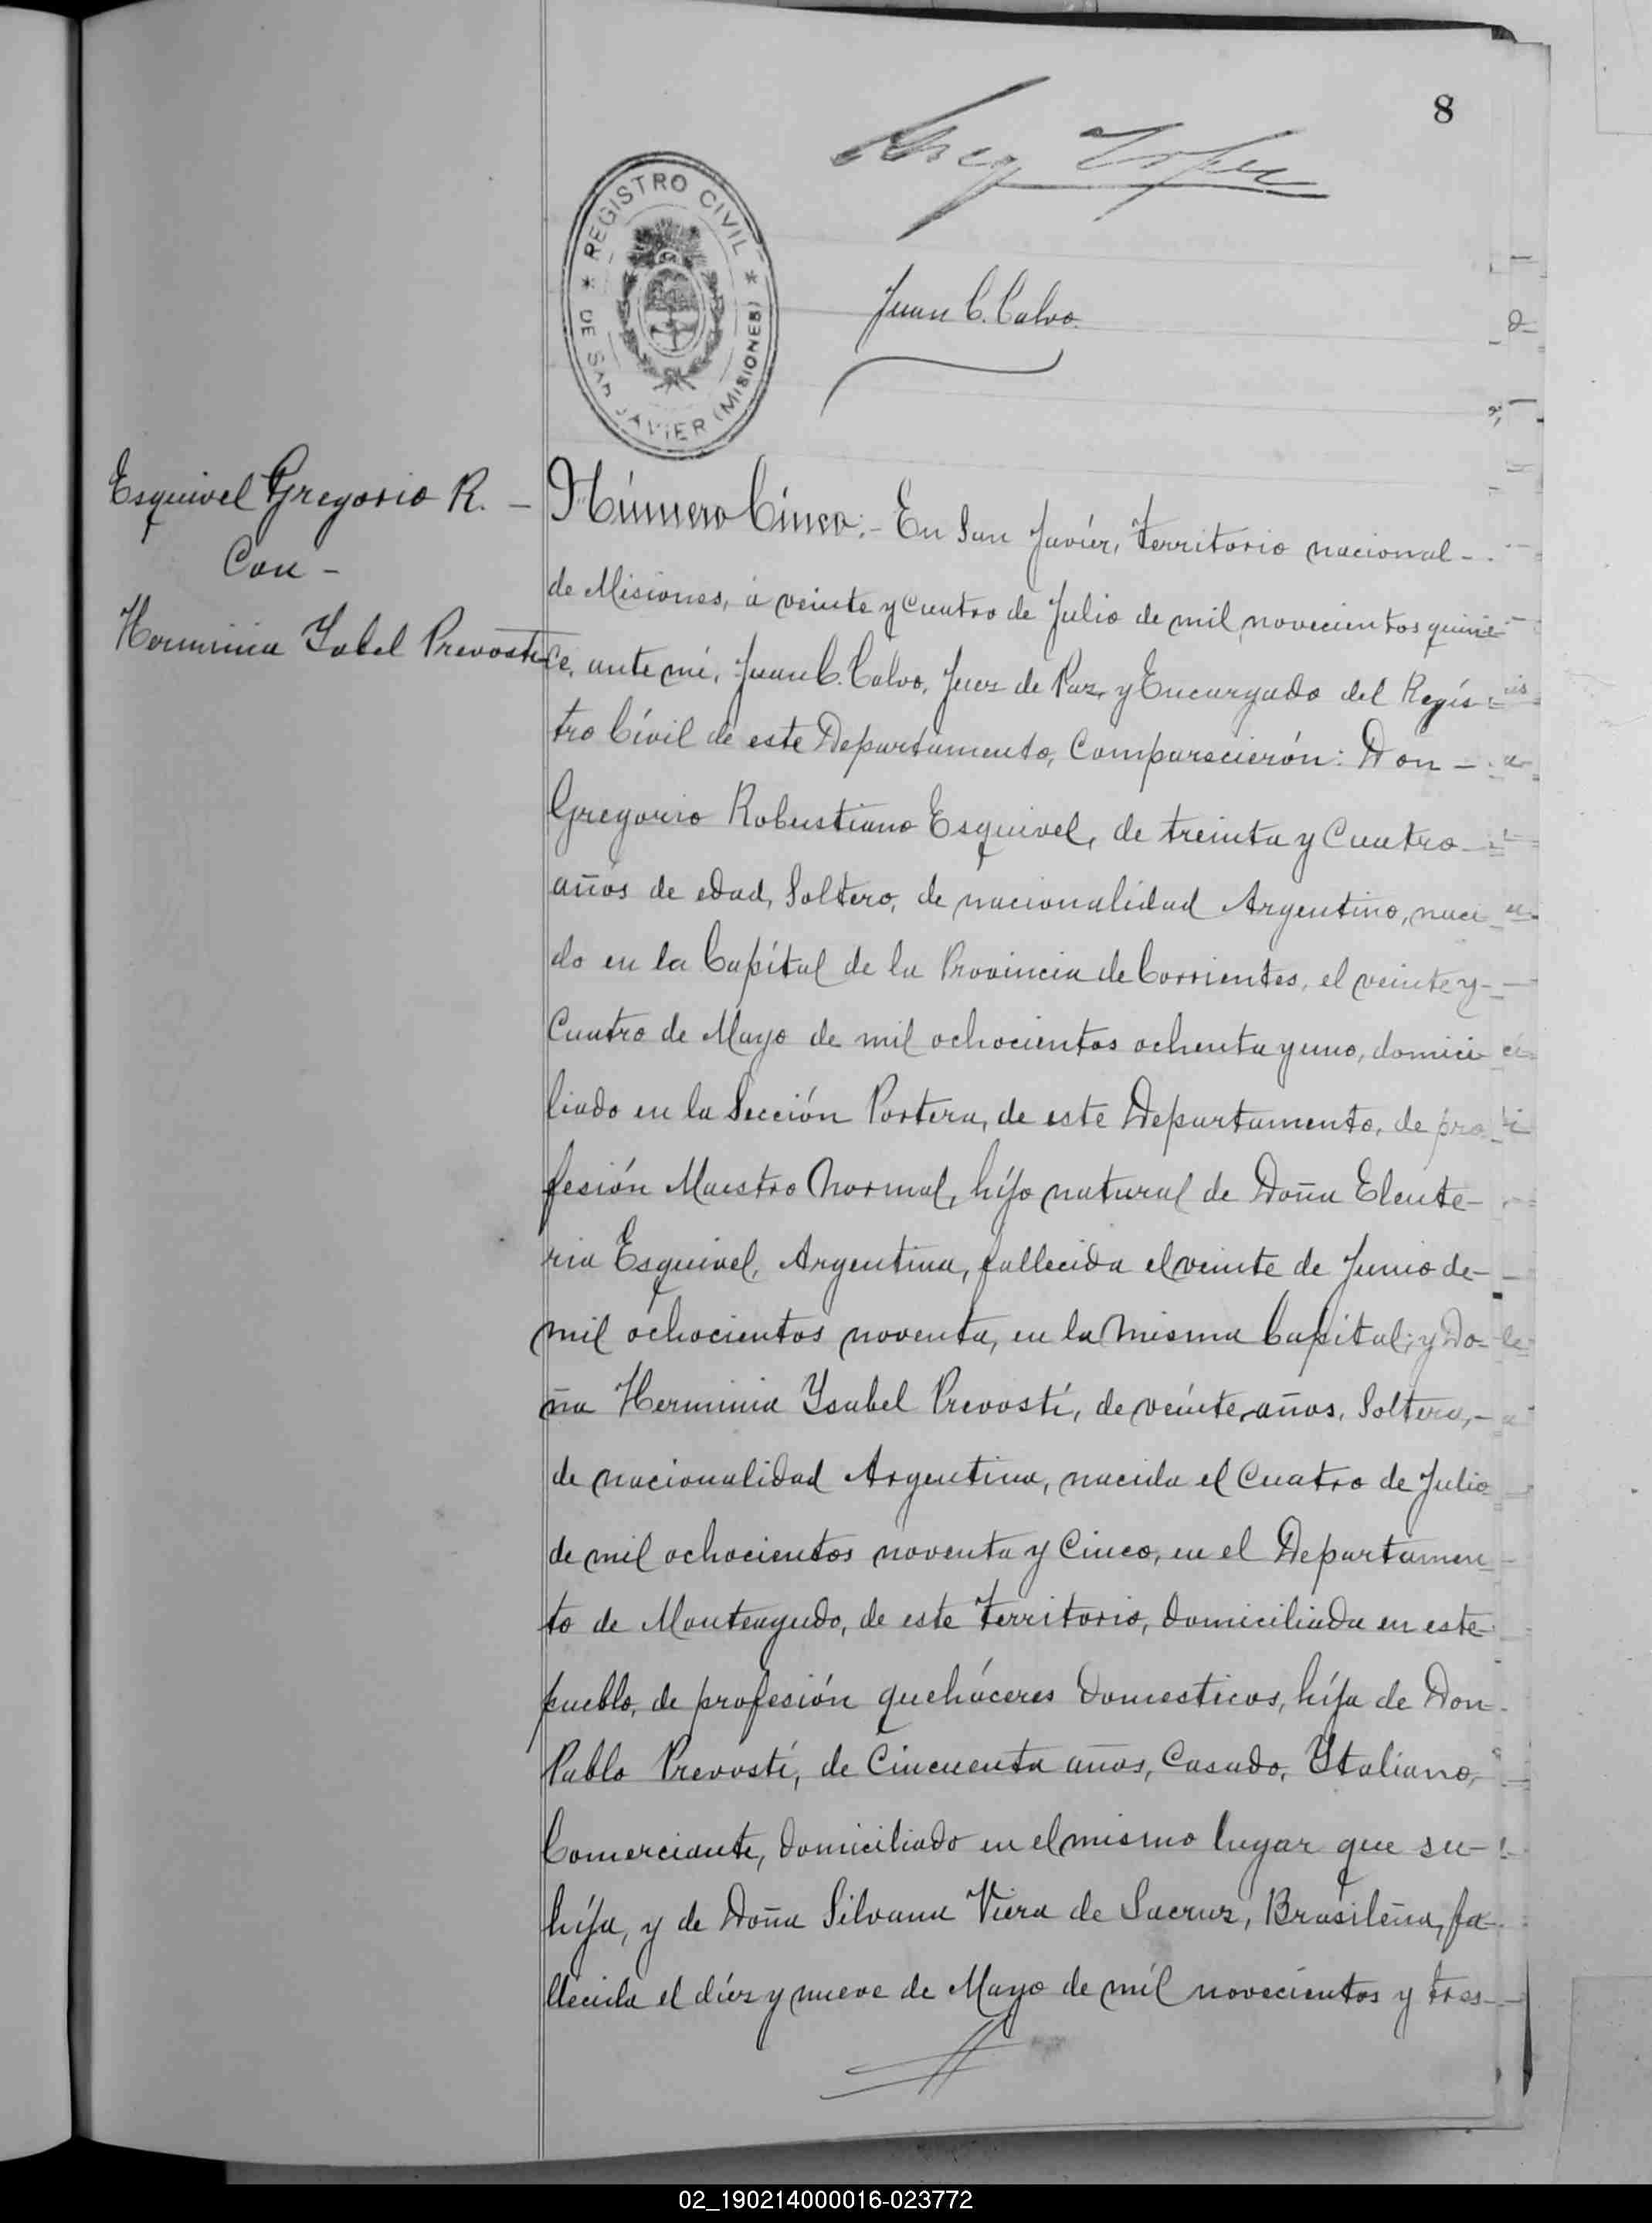 8
REGISTRO CIVIL
DE SAN JAVIER (MISIONES)
Juan C. Calvo.
Esquivel Gregorio R. -
Con -
Herminia Ysabel Prevosti
Número Cinco.- En San Javiér, Territorio nacional -
de Misiones, á veinte y Cuatro de Julio de mil novecientos quin
ce, ante mí, Juan C. Calvo, Juez de Paz, y Encargado del Regís=
tro Cívil de este Departamento, Comparecierón: Don -
Gregorio Robustiano Esquivel, de treinta y Cuatro
años de edad, Soltero, de nacionalidad Argentino, naci
do en la Capítal de la Provincia de Corrientes, el veinte y-
Cuatro de Mayo de mil ochocientos ochenta y uno, domici
liado en la Sección Portera, de este Departamento, de pro
fesión Maestro Normal, híjo natural de Doña Eleute-
ria Esquivel, Argentina, fallecida el veinte de Junio de-
mil ochocientos noventa, en la misma Capítal; y Do-
ña Herminia Ysabel Prevostí, de veínte años, Soltera,-
de nacionalidad Argentina, nacida el Cuatro de Julio
de mil ochocientos noventa y Cinco, en el Departamen
to de Monteagudo, de este Territorio, domiciliada en este
pueblo, de profesión queháceres domesticos, híja de Don-
Pablo Prevostí, de Cincuenta años, Casado, Ytaliano,
Comerciante, domiciliado en el mismo lugar que su-
híja, y de Doña Silvana Viera de Sacruz, Brasileña, fa-
llecida el díez y nueve de Mayo de míl novecientos y tres-
02_190214000016-023772